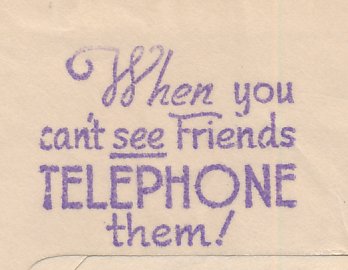 When you
can't see Friends
TELEPHONE
them!